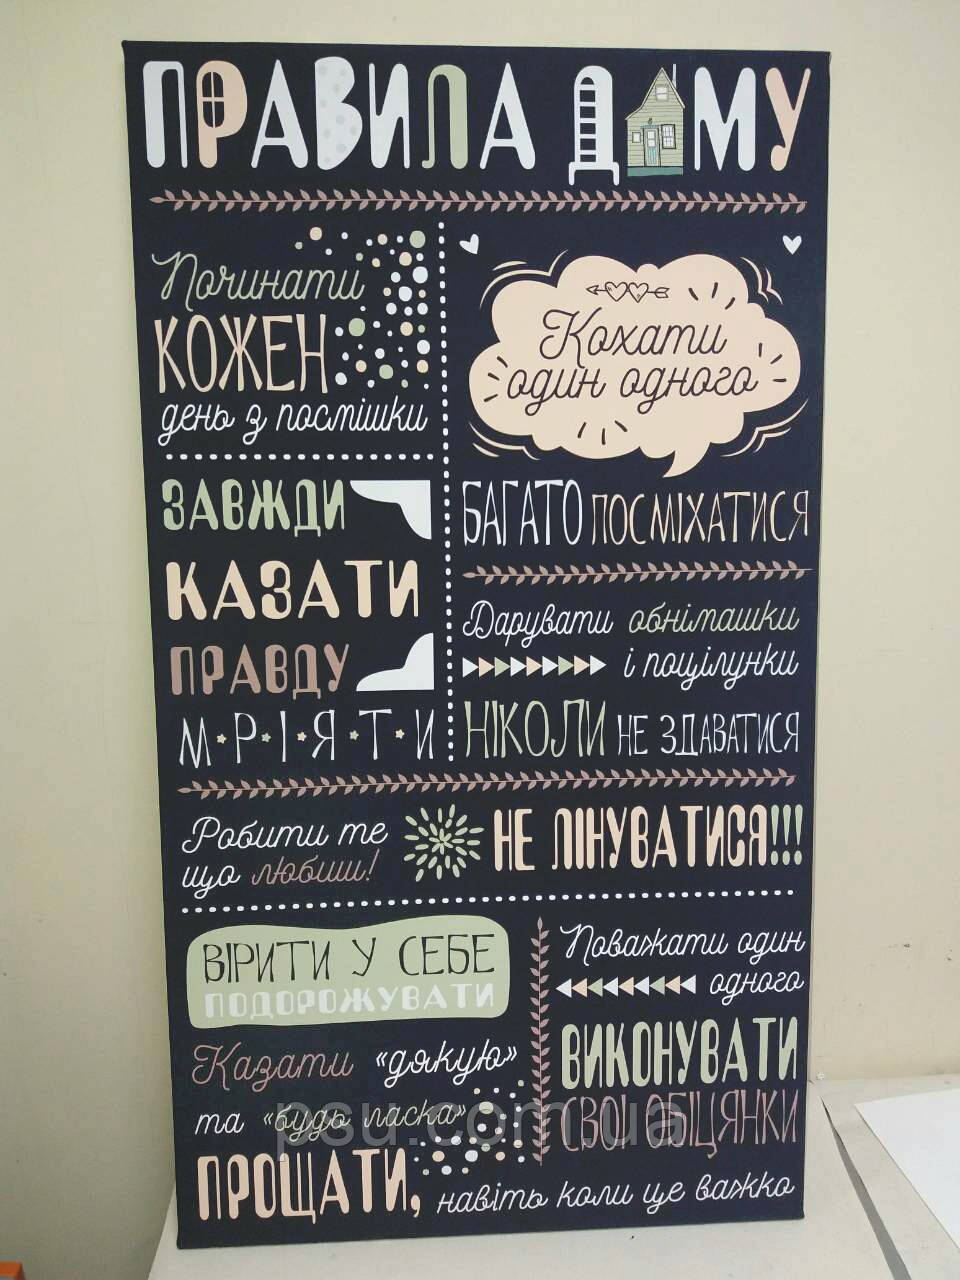 ПРАВИЛА ДОМУ
Починати
КОЖЕН
день з посмішки
ЗАВЖДИ
КАЗАТИ
ПРАВДУ
М·Р·І·Я·Т·И
Кохати
один одного
БАГАТО ПОСМІХАТИСЯ
Дарувати обнімашки
і поцілунки
НІКОЛИ НЕ ЗДАВАТИСЯ
Робити те
що любиш!
НЕ ЛІНУВАТИСЯ!!!
ВІРИТИ У СЕБЕ
ПОДОРОЖУВАТИ
Казати «дякую»
та «будь ласка»
ПРОЩАТИ, навіть коли це важко
Поважати один
одного
ВИКОНУВАТИ
СВОЇ ОБІЦЯНКИ
psu.com.ua